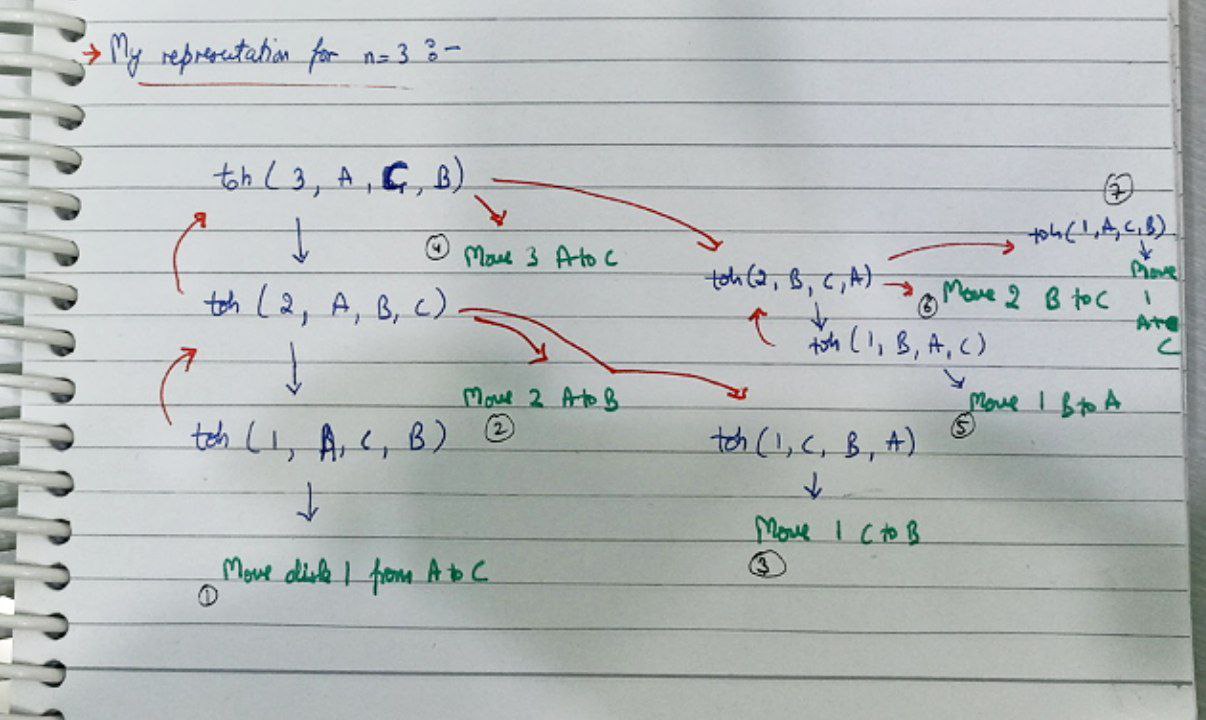 → My represutation for n=3 :-
toh ( 3, A, C, B)
④ Move 3 A to C
toh ( 2, A, B, C)
Move 2 A to B
②
toh (1, A, C, B)
Move disk 1 from A to C
①
toh (1, C, B, A)
Move 1 C to B
③
toh (2, B, C, A)
⑥ Move 2 B to C
toh (1, B, A, C)
Move 1 B to A
⑤
⑦
toh (1, A, C, B)
Move
1
A to
C